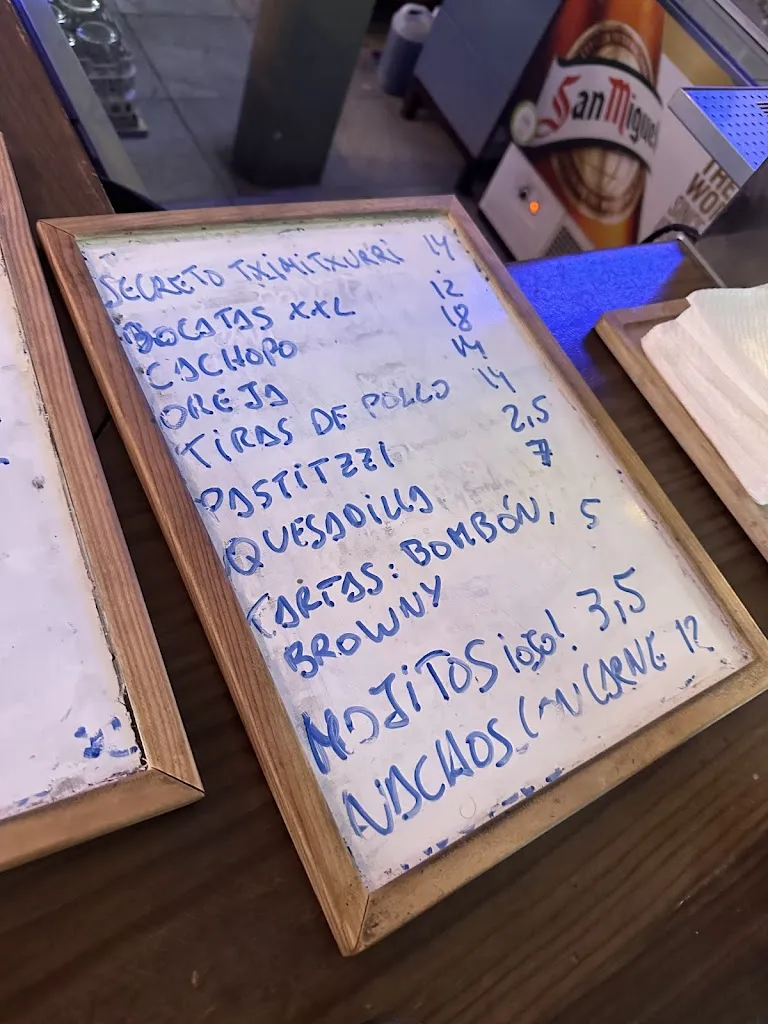 SECRETO TXIMITXURRI 14
BOCATAS XXL 12
CACHOPO 18
OREJA 14
TIRAS DE POLLO 14
PASTITZZI 2,5
QUESADILLA 7
TARTAS: BOMBÓN, 5
BROWNY
MOJITOS ¡OJO! 3,5
NACHOS CON CARNE 12
San Miguel
THE
WO